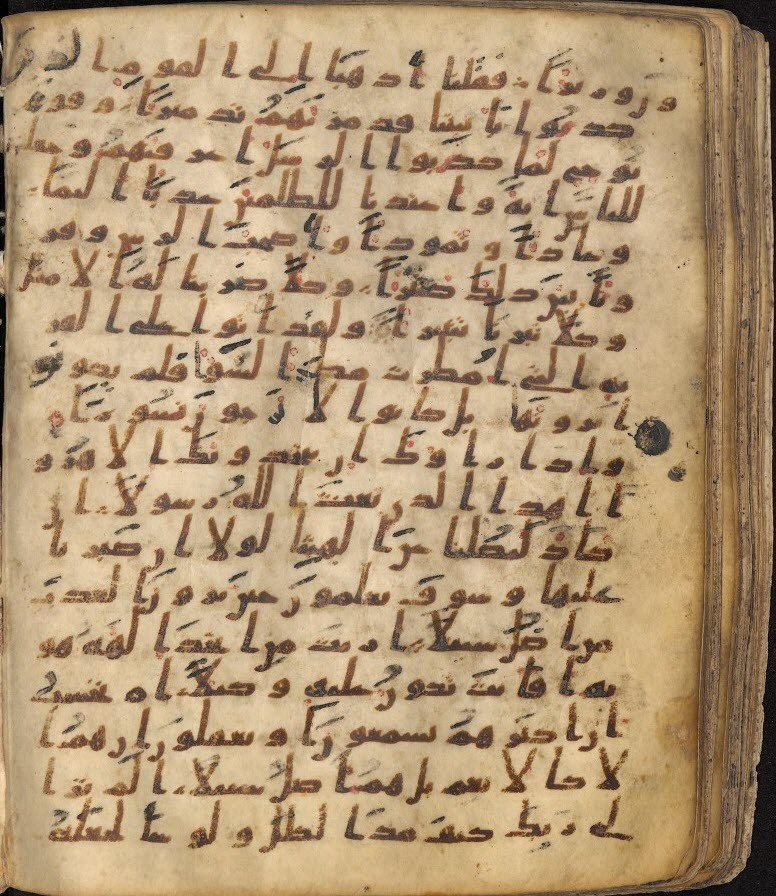 وزيرا فقلنا اذهبا الى القوم الذين
كذبوا بايتنا فدمرنهم تدميرا وقوم
نوح لما كذبوا الرسل اغرقنهم وجعلنهم
للناس اية واعتدنا للظلمين عذابا اليما
وعادا وثمودا واصحب الرس وقرو
نا بين ذلك كثيرا وكلا ضربنا له الامثل
وكلا تبرنا تتبيرا ولقد اتوا على القر
ية التى امطرت مطر السو افلم يكونو
ا يرونها بل كانوا لا يرجون نشورا
واذا راوك ان يتخذونك الا هزو
ا اهذا الذى بعث الله رسولا ان
كاد ليضلنا عن الهتنا لولا ان صبرنا
عليها وسوف يعلمون حين يرون العذب
من اضل سبيلا اريت من اتخذ الهه هو
يه افانت تكون عليه وكيلا ام تحسب
ان اكثرهم يسمعون او يعقلون ان هم ا
لا كالانعم بل هم اضل سبيلا الم تر ا
لى ربك كيف مد الظل ولو شا لجعله